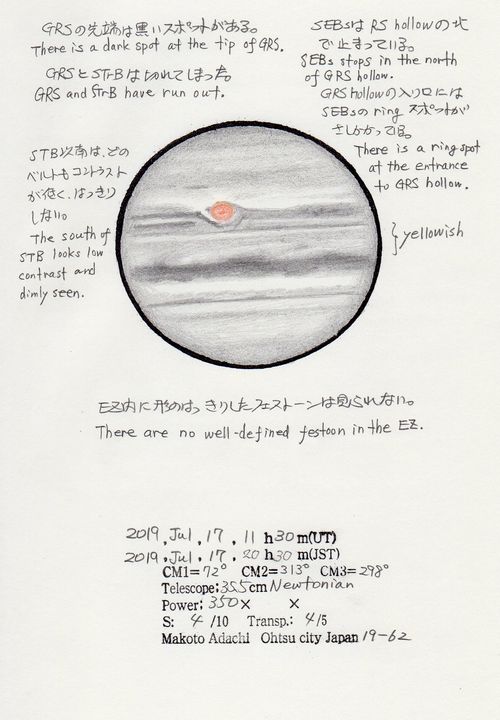 GRSの先端は黒いスポットがある。
There is a dark spot at the tip of GRS.
GRSとSTrBは切れてしまった。
GRS and STrB have run out.
SEBsはRS hollowの北
で止まっている。
SEBs stops in the north
of GRS hollow.
GRS hollowの入り口には
SEBsのring スポットが
さしかかってる。
There is a ring spot
at the entrance
to GRS hollow.
STB以南は、どの
ベルトもコントラスト
が低く、はっきり
しない。
The south of
STB looks low
contrast and
dimly seen.
yellowish
EZ内に形のはっきりしたフェストーンは見られない。
There are no well-defined festoon in the EZ.
2019, Jul, 17, 11 h 30 m(UT)
2019, Jul, 17, 20 h 30 m(JST)
CM1= 72° CM2= 313° CM3= 298°
Telescope: 355 cm Newtonian
Power: 350 × ×
S: 4 /10 Transp.: 4/5
Makoto Adachi Ohtsu city Japan 19-62